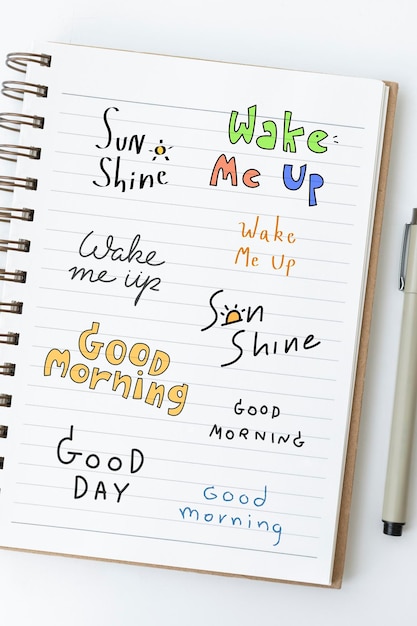 Sun
Shine
Wake
Me Up
Wake
me up
Wake
Me Up
Sun
Shine
Good
Morning
GOOD
MORNING
GOOD
DAY
Good
morning